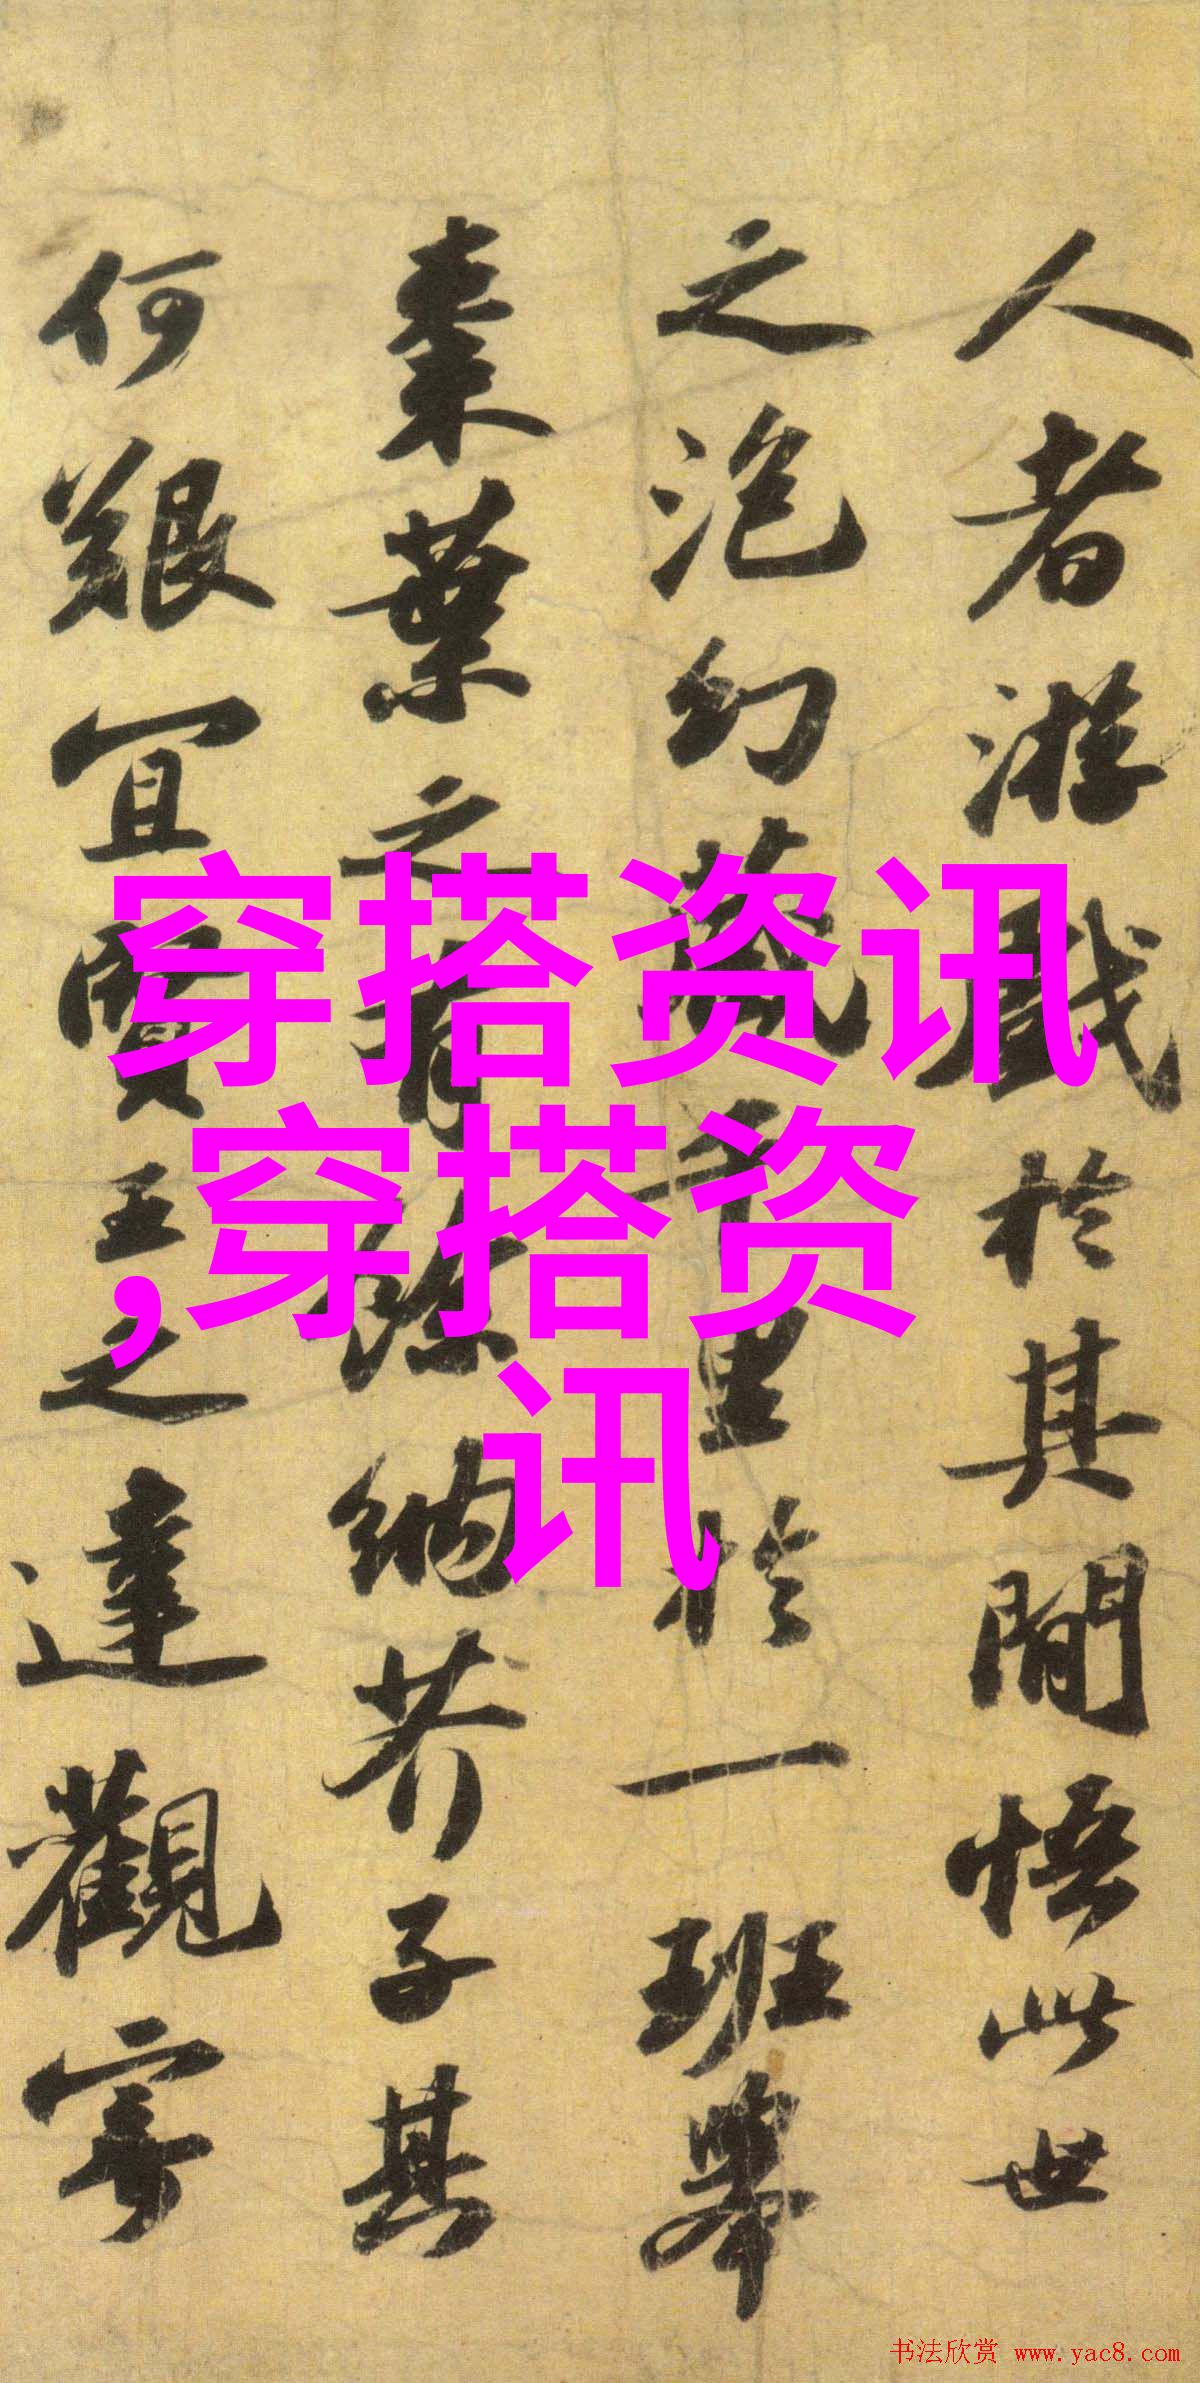 人者游戲於其間悟此世
之泡幻藏千里於一班舉
棗葉之有餘納芥子其
何艱宜賢王之達觀寄
穿搭资讯
,穿搭资
讯
书法欣赏 www.yac8.com